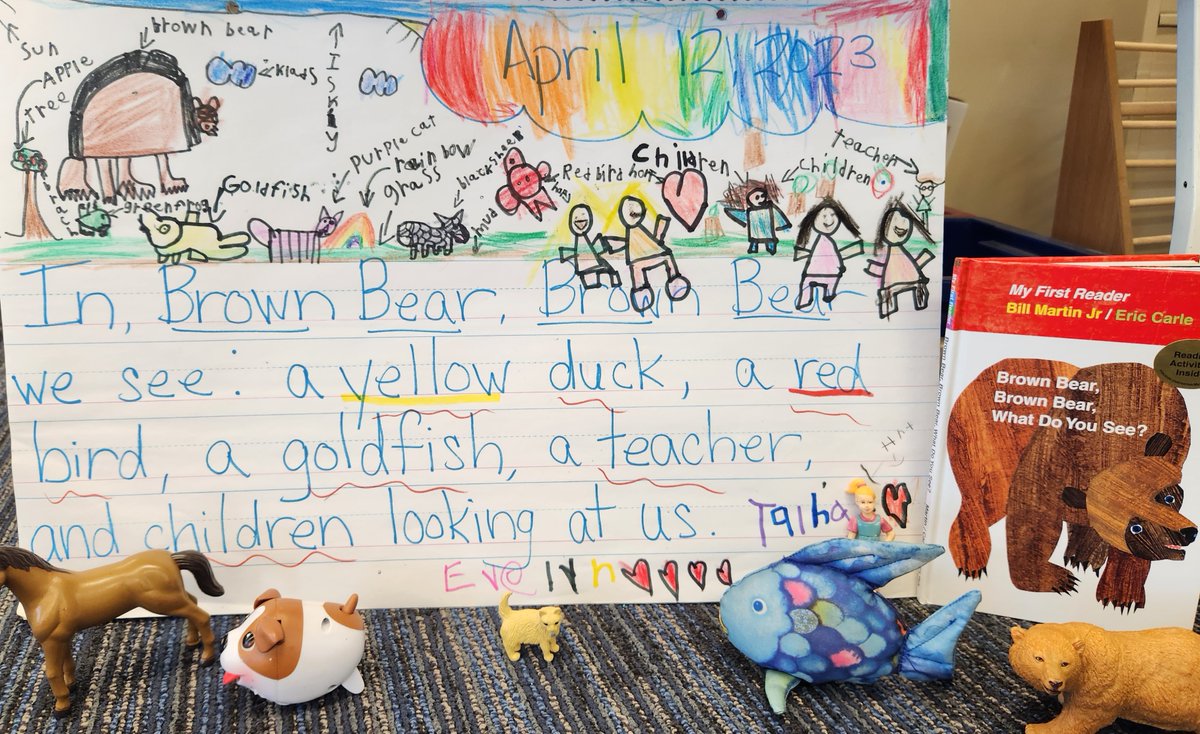 April 12, 2023
Sun
brown bear
klads
skiy
APPle
tree
purple cat
rainbow
grass
black sheep
Red bird
hort
children
children
teacher
Goldfish
greenfrog
mud
In, Brown Bear, Brown Bear
we see: a yellow duck, a red
bird, a goldfish, a teacher,
and children looking at us.
Talha
Evelyn
My First Reader
Bill Martin Jr / Eric Carle
Brown Bear,
Brown Bear,
What Do You See?